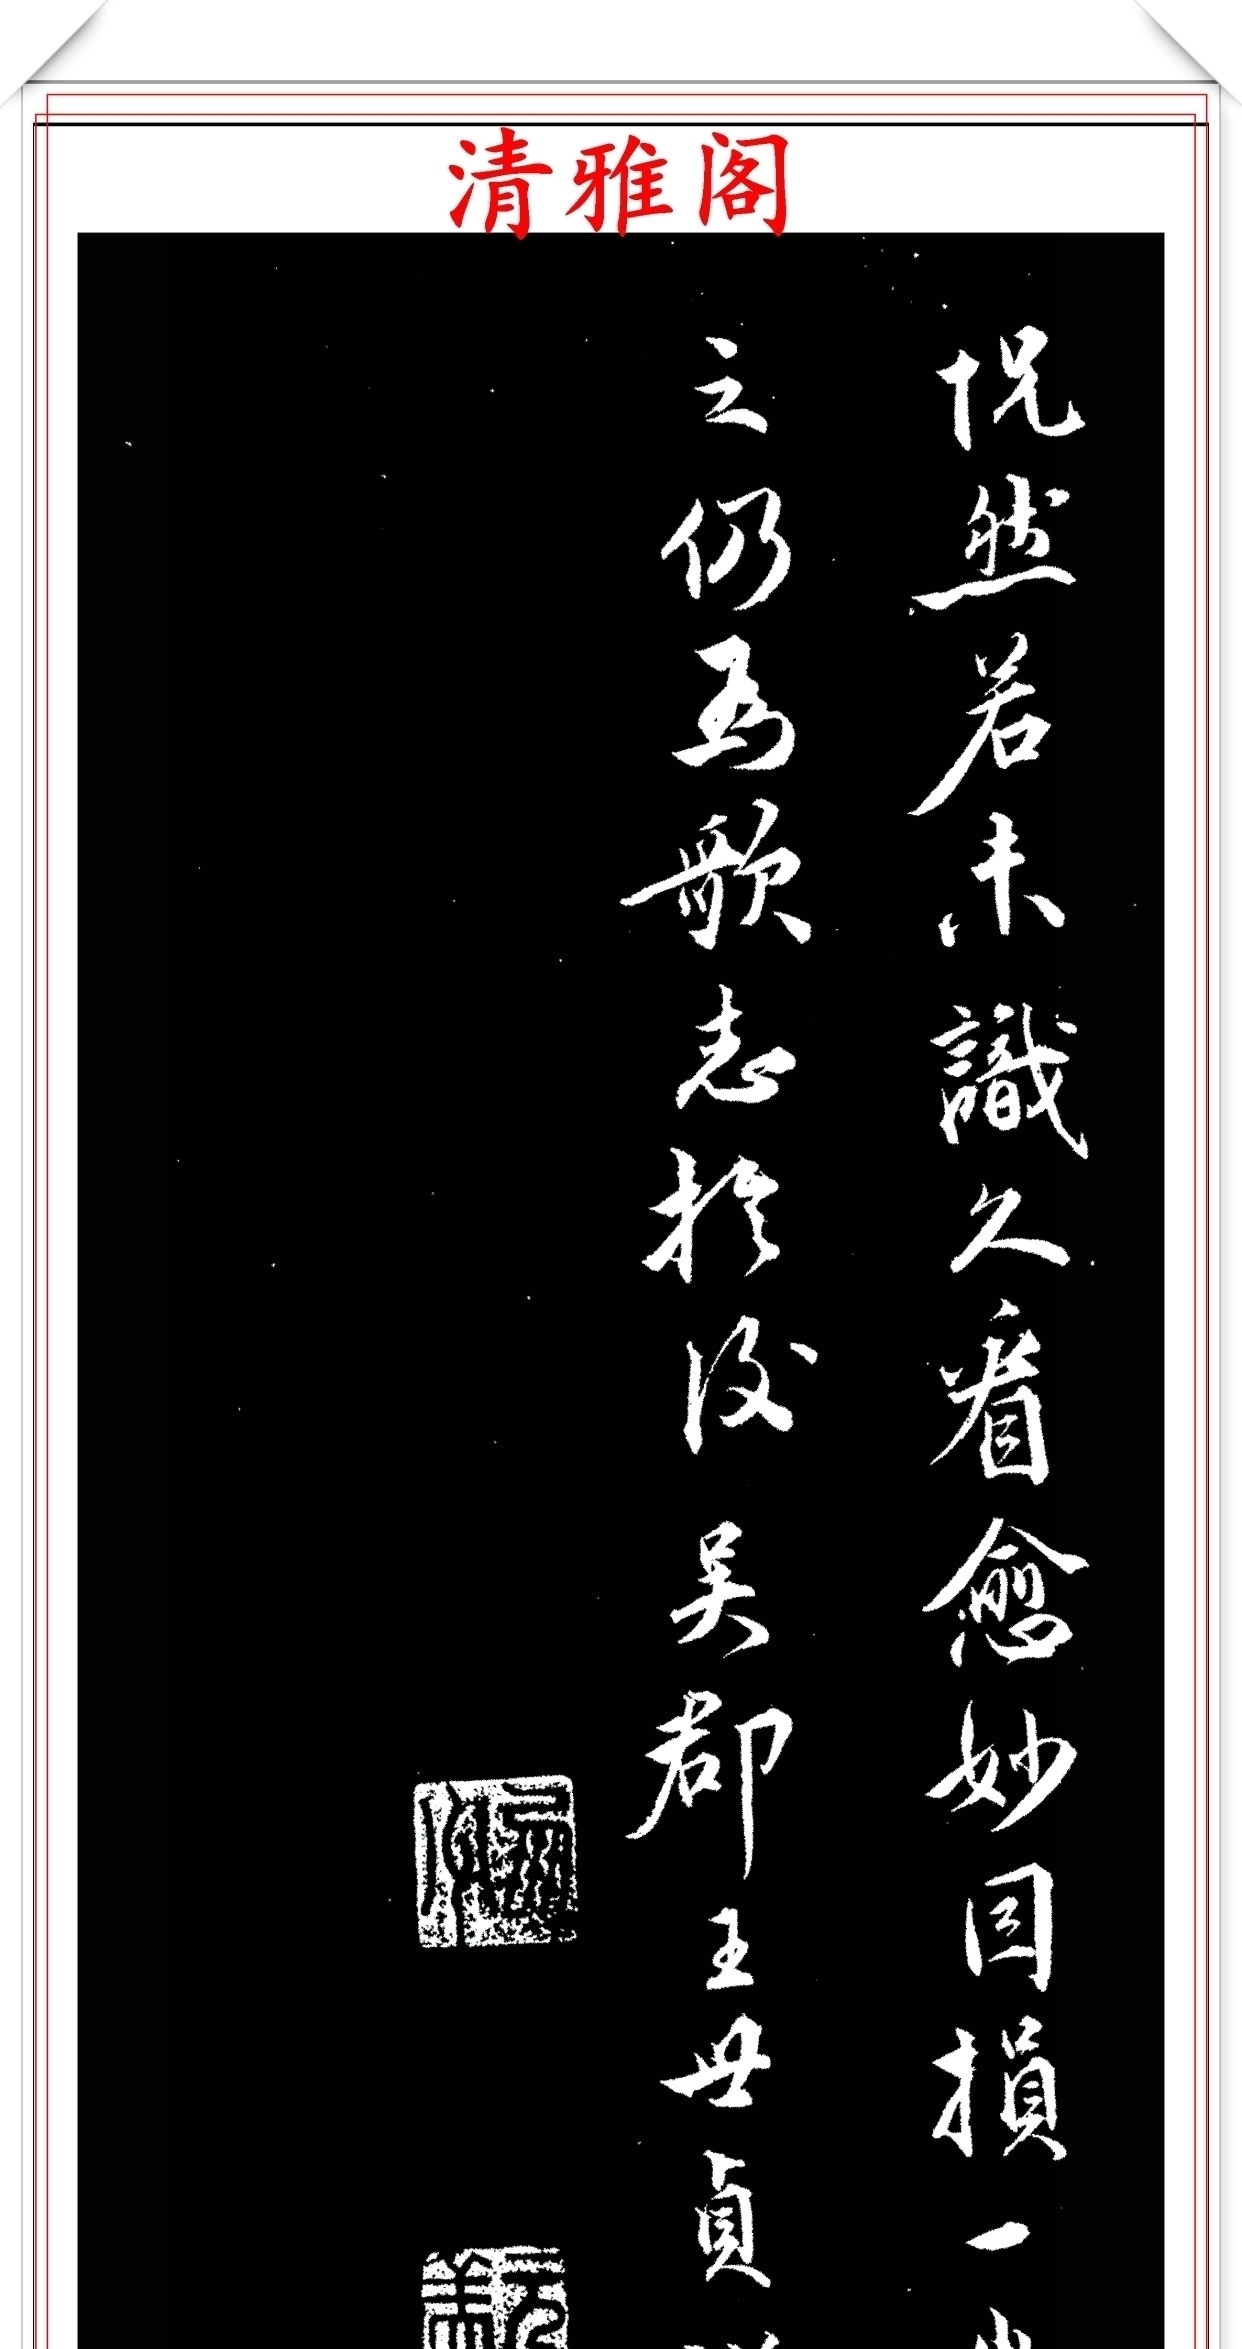 清雅阁
怳然若未識久看愈妙因損一
之仍為歌志於後吳郡王世貞